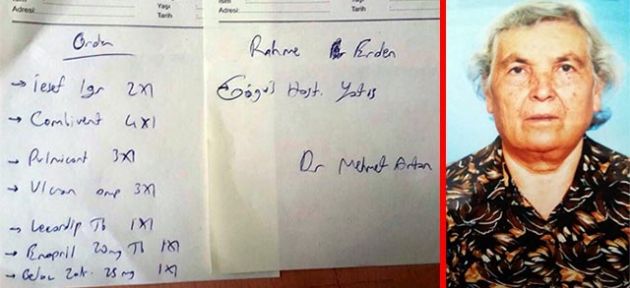 İsim
Adresi :
Yaşı
Tarih
Order
→ iesef 1gr 2x1
→ Combivent 4x1
→ Pulmicort 3x1
→ Ulcuran amp 3x1
→ Lercadip Tb 1x1
→ Enapril 20mg Tb 1x1
→ Beloc Zok. 25mg 1x1
Adresi :
Yaşı
Tarih
Rahme Erden
Göğüs Hast. Yatış
Dr Mehmet